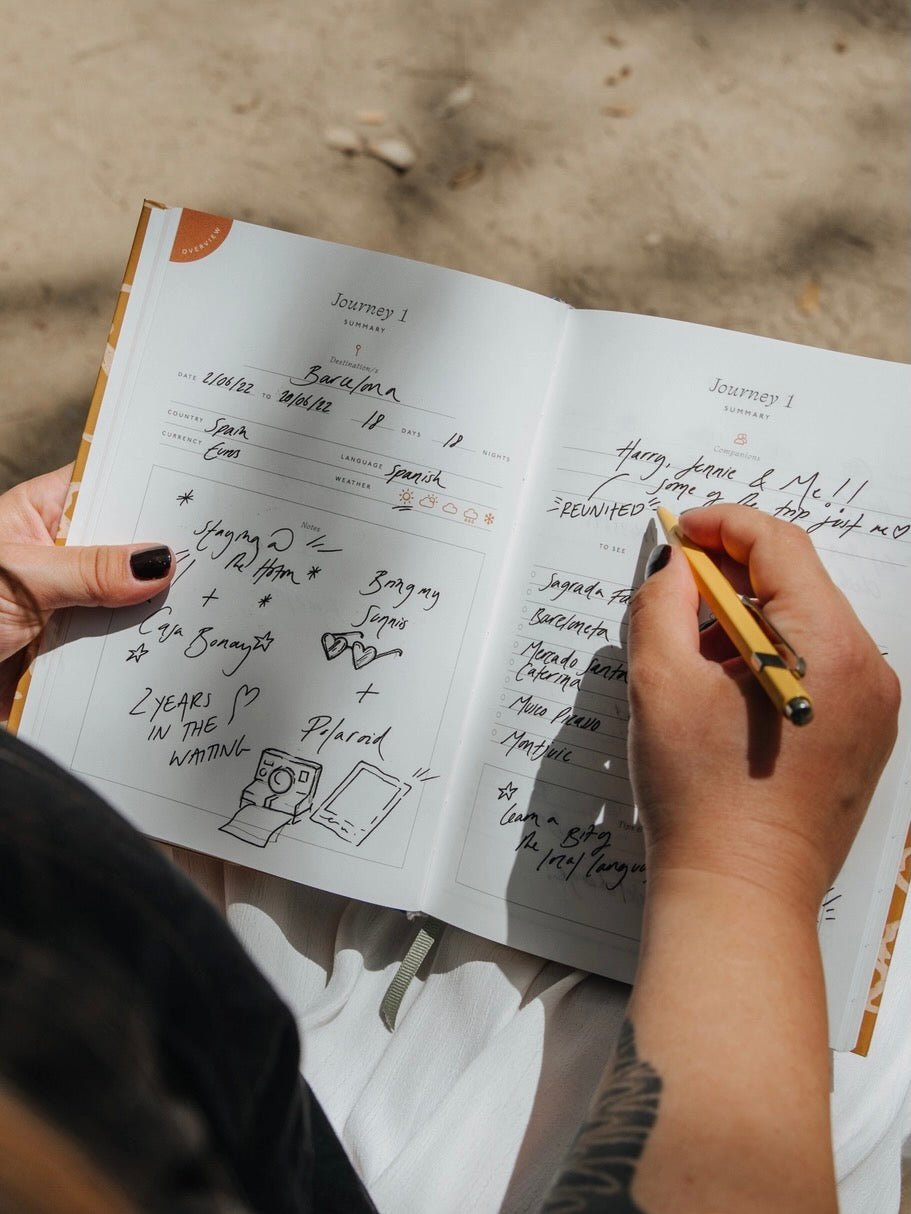 OVERVIEW
Journey 1
SUMMARY
Destination/s
Barcelona
DATE 2/06/22 TO 20/06/22 18 DAYS 18 NIGHTS
COUNTRY Spain LANGUAGE Spanish
CURRENCY Euros WEATHER
Notes
Staying @
the Hoxton
+
Casa Bonay
2 YEARS
IN THE
WAITING
Bring my
Sunnis
+
Polaroid
Journey 1
SUMMARY
Companions
Harry, Jennie & Me!!
some of the trip just me
REUNITED
TO SEE
Sagrada Fa
Barceloneta
Mercado Santa
Caterina
Museo Picasso
Montjuic
learn a
Bit of
the local langua